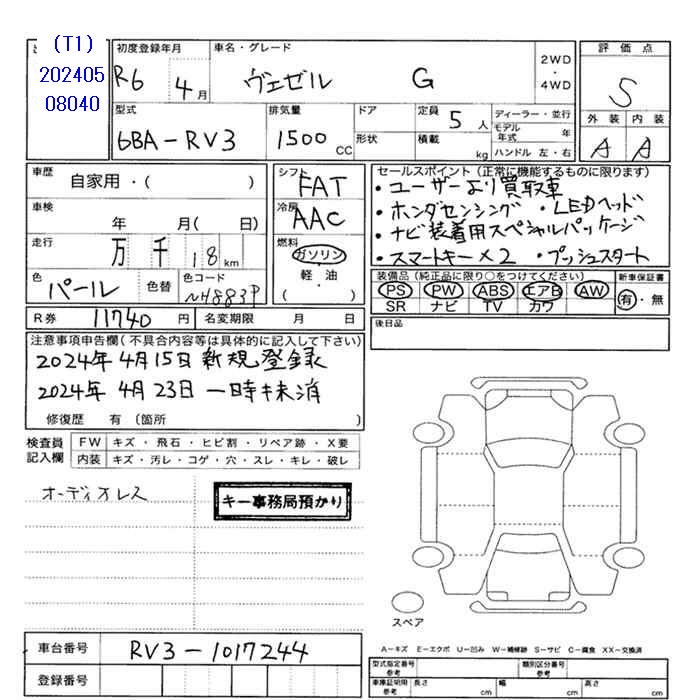 (T1)
202405
08040
初度登録年月
R6 4月
車名・グレード
ヴェゼル G
2WD
・
4WD
評価点
S
外装 内装
A A
型式
6BA-RV3
排気量
1500 CC
ドア
形状
定員 5人
積載 kg
ディーラー・並行
モデル年式 年
ハンドル 左・右
車歴
自家用・( )
車検
年 月( 日)
走行
万 千 18 km
色
パール
色替
色コード
NH883P
シフト
FAT
冷房
AAC
燃料
ガソリン
軽・油
( )
セールスポイント(正常に機能するものに限ります)
・ユーザーより買取車
・ホンダセンシング ・LEDヘッド
・ナビ装着用スペシャルパッケージ
・スマートキー×2 ・プッシュスタート
装備品(純正品に限り○をつけてください)
PS PW ABS エアB AW
SR ナビ TV カワ
新車保証書
有・無
R券 11740円
名変期限 月 日
後日品
注意事項申告欄(不具合内容等は具体的に記入して下さい)
2024年4月15日新規登録
2024年4月23日一時抹消
修復歴 有(箇所 )
検査員
記入欄
FW キズ・飛石・ヒビ割・リペア跡・X要
内装 キズ・汚レ・コゲ・穴・スレ・キレ・破レ
オーディオレス
キー事務局預かり
スペア
車台番号 RV3-1017244
登録番号
A=キズ E=エクボ U=凹み W=補修跡 S=サビ C=腐食 XX=交換済
型式指定番号
参考
類別区分番号
参考
車庫証明用
参考
長さ cm 幅 cm 高さ cm